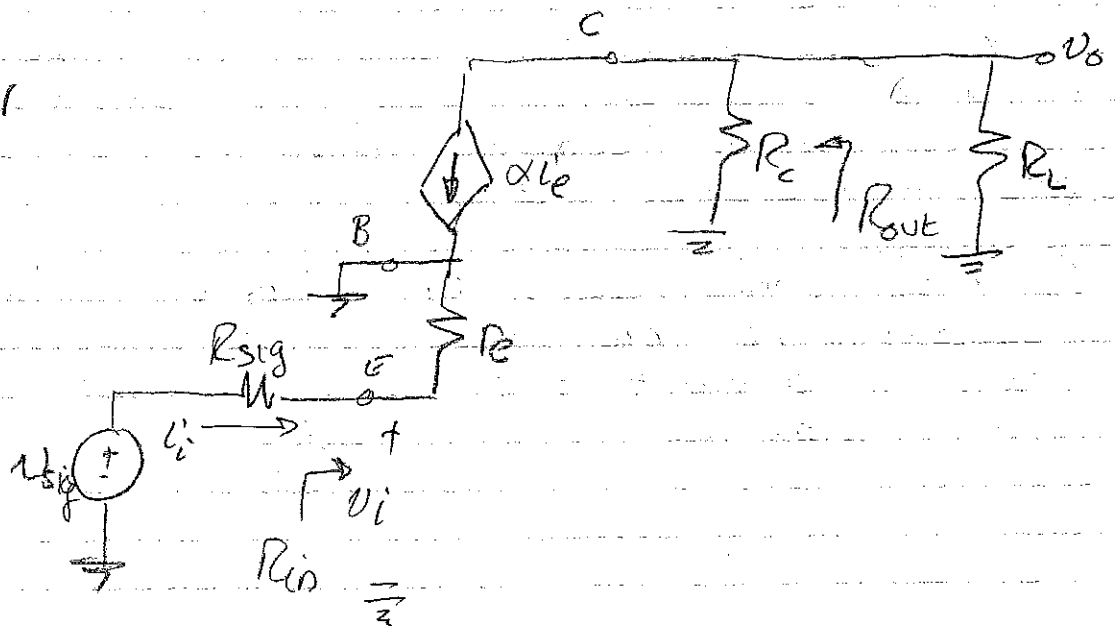 C
v_o
αi_e
R_C
R_out
R_L
B
r_e
R_sig
E
i_i
+
v_sig
+
-
v_i
R_in
-